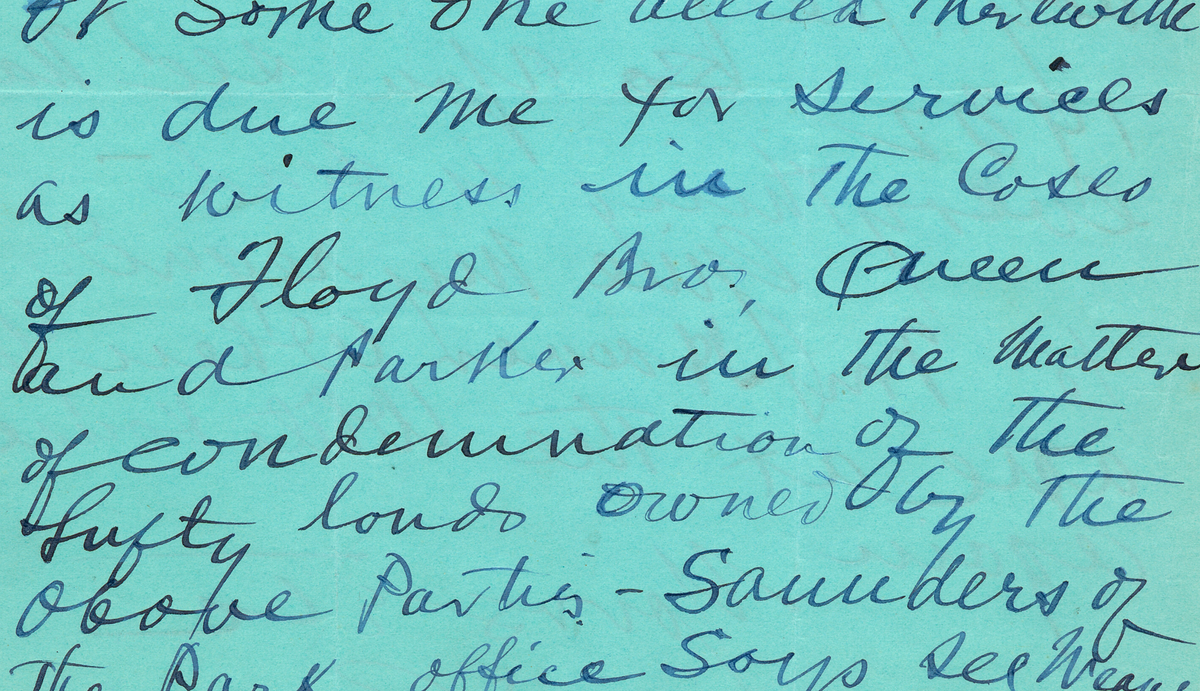 or some one allied therewith
is due me for services
as witness in the Cases
of Floyd Bros, Queen
and Parker in the Matter
of condemnation of the
lands owned by the
above Parties - Saunders of
the Park office Says see